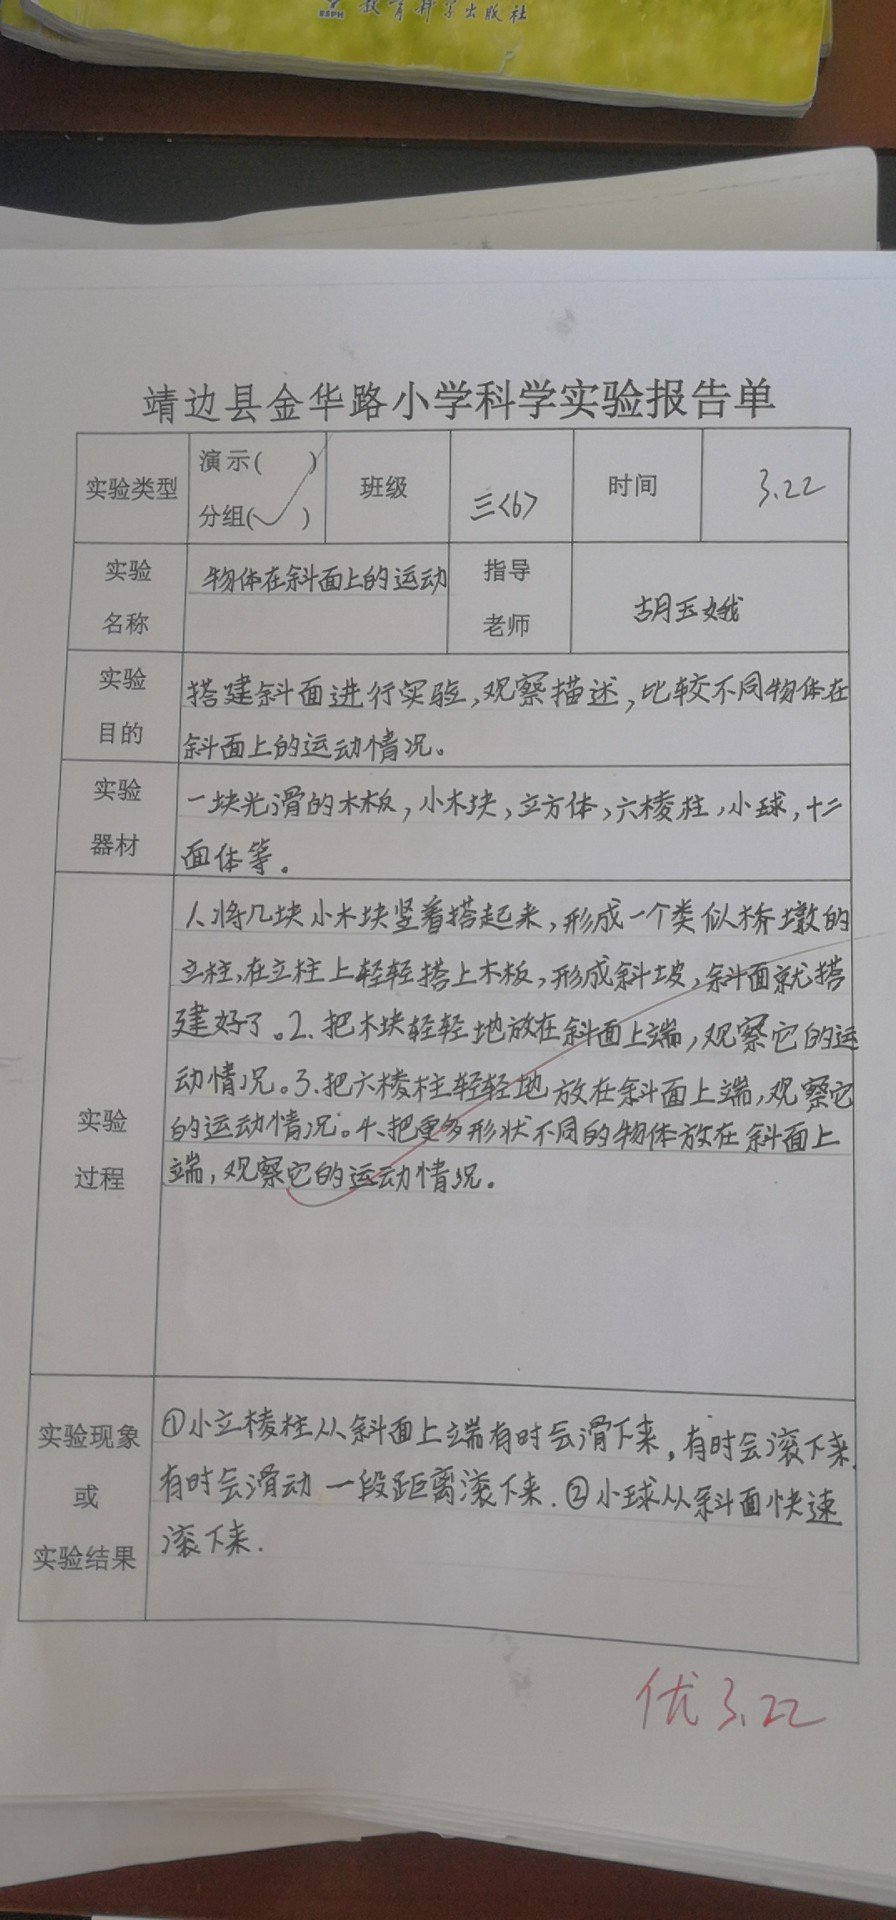 教育科学出版社
ESPH
靖边县金华路小学科学实验报告单
实验类型 演示( ) 分组(✓) 班级 三<6> 时间 3.22
实验名称 物体在斜面上的运动 指导老师 胡玉娥
实验目的
搭建斜面进行实验,观察描述,比较不同物体在
斜面上的运动情况。
实验器材
一块光滑的木板,小木块,立方体,六棱柱,小球,十二
面体等。
实验过程
1、将几块小木块竖着搭起来,形成一个类似桥墩的
立柱,在立柱上轻轻搭上木板,形成斜坡,斜面就搭
建好了。2、把木块轻轻地放在斜面上端,观察它的运
动情况。3、把六棱柱轻轻地放在斜面上端,观察它
的运动情况。4、把更多形状不同的物体放在斜面上
端,观察它的运动情况。
实验现象或实验结果
①小立棱柱从斜面上端有时会滑下来,有时会滚下来,
有时会滑动一段距离滚下来.②小球从斜面快速
滚下来.
优 3.22